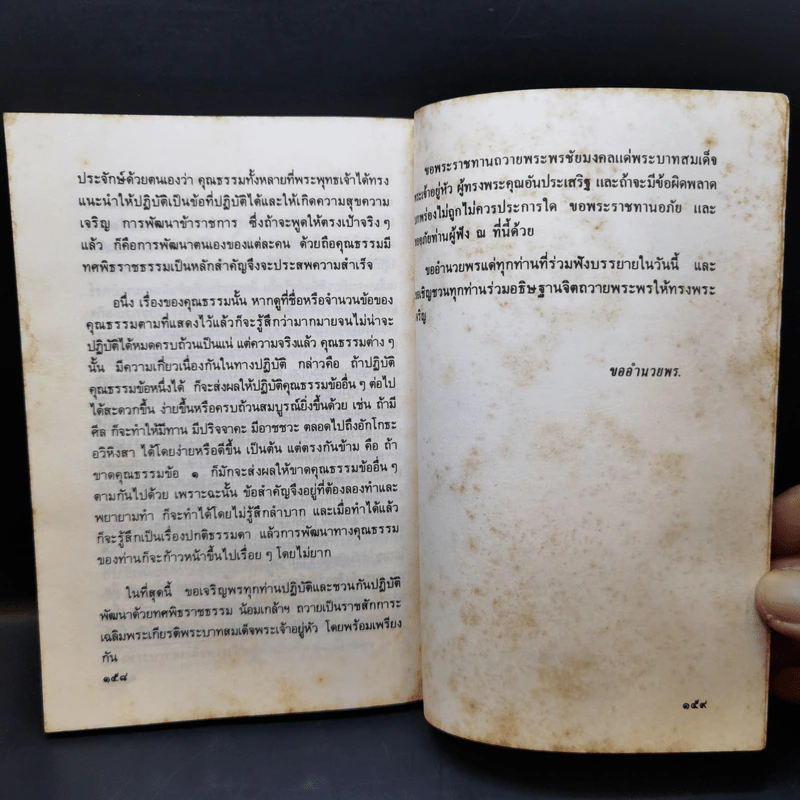 ประจักษ์ด้วยตนเองว่า คุณธรรมทั้งหลายที่พระพุทธเจ้าได้ทรง
แนะนำให้ปฏิบัติเป็นข้อที่ปฏิบัติได้และให้เกิดความสุขความ
เจริญ การพัฒนาข้าราชการ ซึ่งถ้าจะพูดให้ตรงเป้าจริง ๆ
แล้ว ก็คือการพัฒนาตนเองของแต่ละคน ด้วยถือคุณธรรมมี
ทศพิธราชธรรมเป็นหลักสำคัญจึงจะประสพความสำเร็จ
อนึ่ง เรื่องของคุณธรรมนั้น หากดูที่ชื่อหรือจำนวนข้อของ
คุณธรรมตามที่แสดงไว้แล้วก็จะรู้สึกว่ามากมายจนไม่น่าจะ
ปฏิบัติได้หมดครบถ้วนเป็นแน่ แต่ความจริงแล้ว คุณธรรมต่าง ๆ
นั้น มีความเกี่ยวเนื่องกันในทางปฏิบัติ กล่าวคือ ถ้าปฏิบัติ
คุณธรรมข้อหนึ่งได้ ก็จะส่งผลให้ปฏิบัติคุณธรรมข้ออื่น ๆ ต่อไป
ได้สะดวกขึ้น ง่ายขึ้นหรือครบถ้วนสมบูรณ์ยิ่งขึ้นด้วย เช่น ถ้ามี
ศีล ก็จะทำให้มีทาน มีปริจจาคะ มีอาชชวะ ตลอดไปถึงอักโกธะ
อวิหิงสา ได้โดยง่ายหรือดีขึ้น เป็นต้น แต่ตรงกันข้าม คือ ถ้า
ขาดคุณธรรมข้อ ๑ ก็มักจะส่งผลให้ขาดคุณธรรมข้ออื่น ๆ
ตามกันไปด้วย เพราะฉะนั้น ข้อสำคัญจึงอยู่ที่ต้องลองทำและ
พยายามทำ ก็จะทำได้โดยไม่รู้สึกลำบาก และเมื่อทำได้แล้ว
ก็จะรู้สึกเป็นเรื่องปกติธรรมดา แล้วการพัฒนาทางคุณธรรม
ของท่านก็จะก้าวหน้าขึ้นไปเรื่อย ๆ โดยไม่ยาก
ในที่สุดนี้ ขอเจริญพรทุกท่านปฏิบัติและชวนกันปฏิบัติ
พัฒนาด้วยทศพิธราชธรรม น้อมเกล้าฯ ถวายเป็นราชสักการะ
เฉลิมพระเกียรติพระบาทสมเด็จพระเจ้าอยู่หัว โดยพร้อมเพรียง
กัน
๑๕๘
ขอพระราชทานถวายพระพรชัยมงคลแด่พระบาทสมเด็จ
พระเจ้าอยู่หัว ผู้ทรงพระคุณอันประเสริฐ และถ้าจะมีข้อผิดพลาด
บกพร่องไม่ถูกไม่ควรประการใด ขอพระราชทานอภัย และ
ขออภัยท่านผู้ฟัง ณ ที่นี้ด้วย
ขออำนวยพรแด่ทุกท่านที่ร่วมฟังบรรยายในวันนี้ และ
ขอเชิญชวนทุกท่านร่วมอธิษฐานจิตถวายพระพรให้ทรงพระ
เจริญ
ขออำนวยพร.
๑๕๙